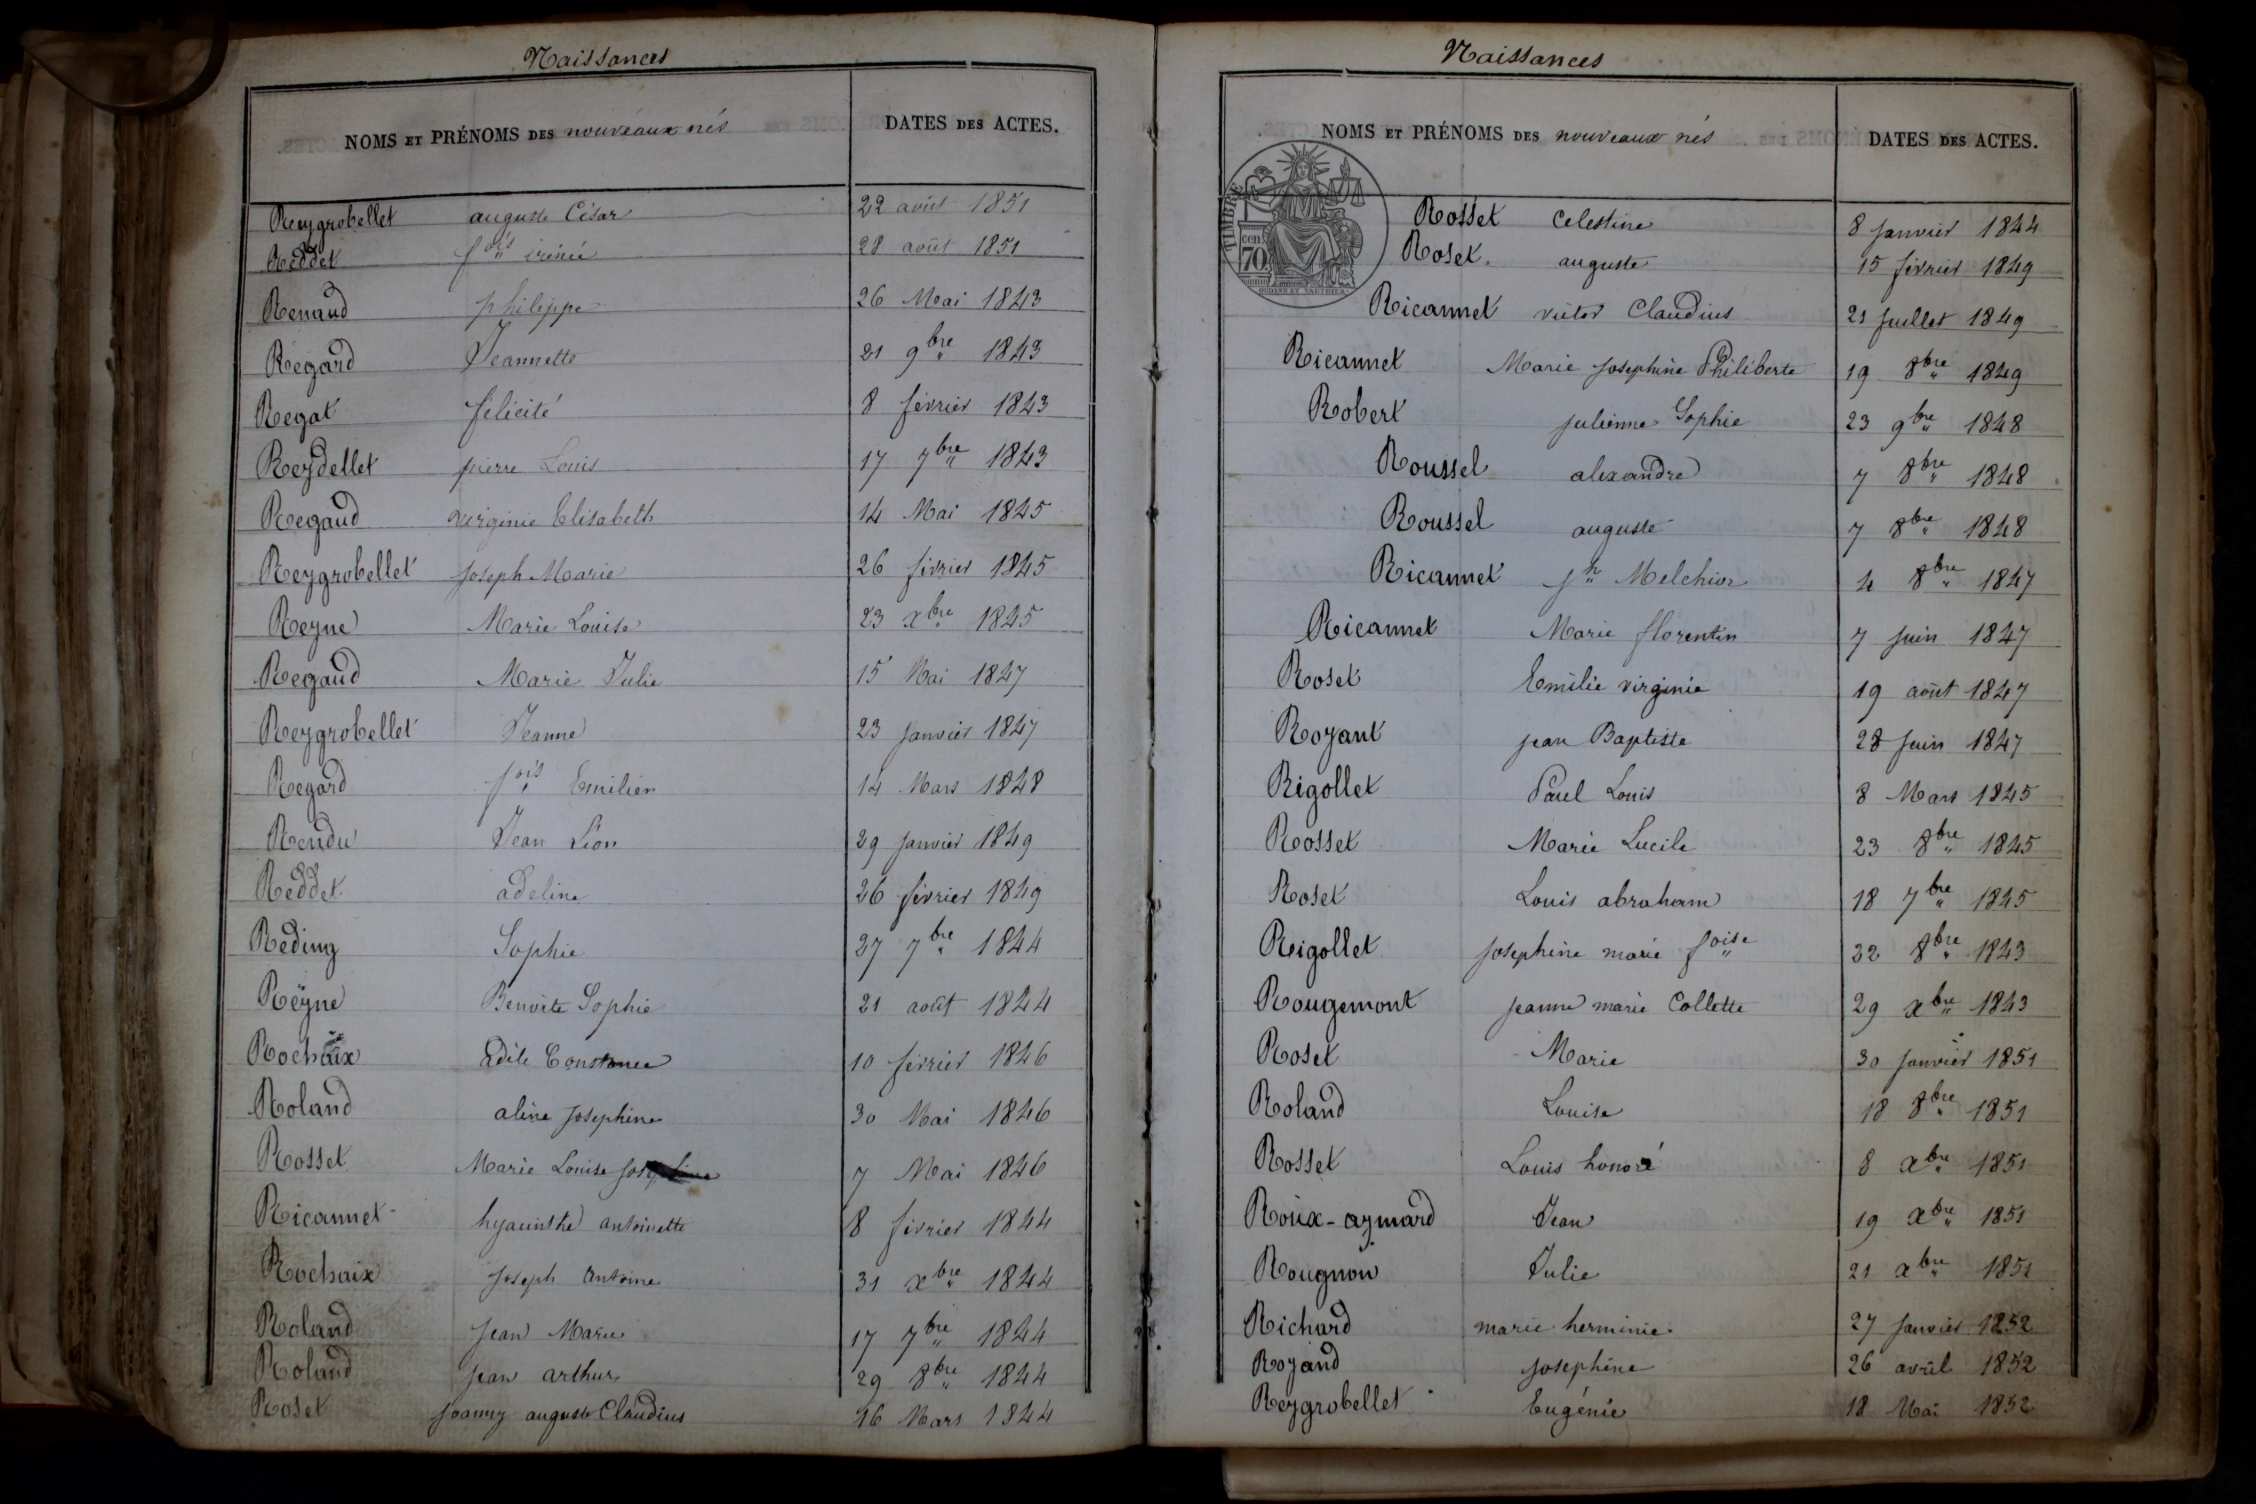 Naissances
NOMS ET PRÉNOMS DES nouveaux nés DATES DES ACTES.
Reygrobellet auguste César 22 août 1851
Reddet fois irénée 28 août 1851
Renaud philippe 26 Mai 1843
Regard Jeannette 21 9bre 1843
Regat félicité 8 février 1843
Reydellet pierre Louis 17 7bre 1843
Regaud virginie Elisabeth 14 Mai 1845
Reygrobellet Joseph Marie 26 février 1845
Reyne Marie Louise 23 xbre 1845
Regaud Marie Julie 15 Mai 1847
Reygrobellet Jeanne 23 Janvier 1847
Regard fois Emilien 14 Mars 1848
Rendu Jean Léon 29 Janvier 1849
Reddet adeline 26 février 1849
Reding Sophie 27 7bre 1844
Reyne Benoite Sophie 21 août 1844
Rochaix Adèle Constance 10 février 1846
Roland aline Josephine 30 Mai 1846
Rosset Marie Louise 7 Mai 1846
Ricannet hyacinthe antoinette 8 février 1844
Rochaix Joseph Antoine 31 xbre 1844
Roland Jean Marie 17 7bre 1844
Roland Jean arthur 29 8bre 1844
Roset Joanny auguste Claudius 16 Mars 1844
Naissances
NOMS ET PRÉNOMS DES nouveaux nés DATES DES ACTES.
TIMBRE
70 cen
Rosset Celestine 8 Janvier 1844
Roset auguste 15 février 1849
Ricannet victor Claudius 21 Juillet 1849
Ricannet Marie Josephine Philiberte 19 8bre 1849
Robert Julienne Sophie 23 9bre 1848
Roussel alexandre 7 8bre 1848
Roussel auguste 7 8bre 1848
Ricannet Jh Melchior 4 8bre 1847
Ricannet Marie florentin 7 Juin 1847
Roset Emilie virginie 19 août 1847
Royant Jean Baptiste 28 Juin 1847
Rigollet Paul Louis 8 Mars 1845
Rosset Marie Lucile 23 8bre 1845
Roset Louis abraham 18 7bre 1845
Rigollet Josephine marie foise 32 8bre 1843
Rougemont Jeanne marie Collette 29 xbre 1843
Roset Marie 30 Janvier 1851
Roland Louise 18 8bre 1851
Rosset Louis honoré 8 xbre 1851
Roux-aymard Jean 19 xbre 1851
Rougnon Julie 21 xbre 1851
Richard marie herminie 27 Janvier 1852
Royand Josephine 26 avril 1852
Reygrobellet Eugénie 18 Mai 1852